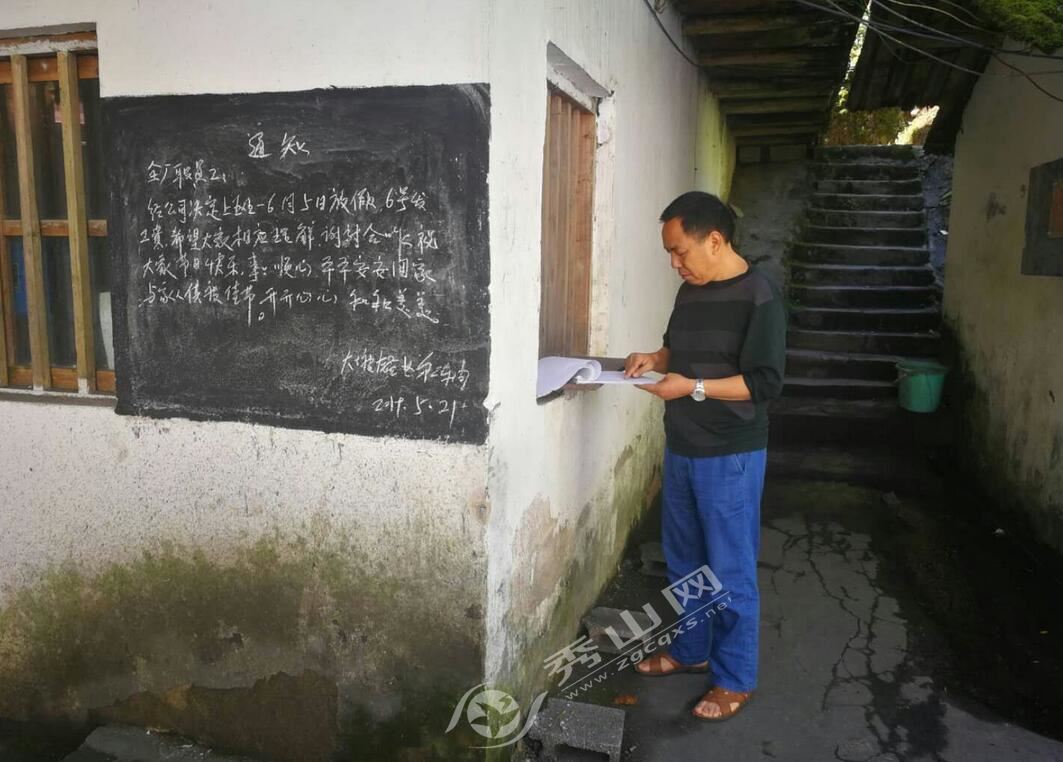 通知
全厂职员工：
经公司决定上班-6月5日放假，6号发
工资，希望大家相应理解，谢谢合作。祝
大家节日快乐，事事顺心，平平安安回家
与家人借我佳节。开开心心，和和美美。
2019.5.21
秀山网
www.zgcqxs.net